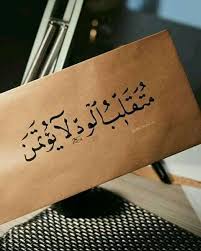 مُتَقَلِّبُ الوُدِّ لَا يُؤْتَمَنُ